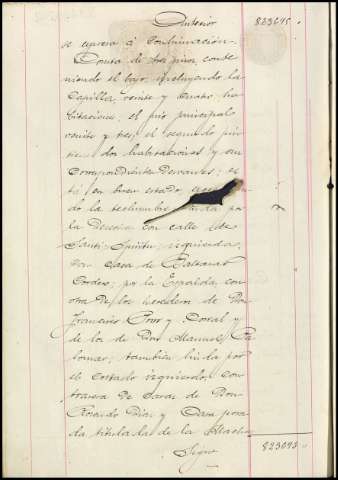 Anterior 823675.
se expresa á continuación.
Consta de tres pisos, conte
niendo el bajo, incluyendo la
Capilla, veinte y cuatro ha
bitaciones; el piso principal
veinte y tres, el segundo piso
tiene dos habitaciones y su
correspondiente Desvanes; es
tá en buen estado,
do la techumbre. Linda por
la Derecha con calle de
Santi-Spiritu; izquierda,
con Casa de Baltasar
Cordero; por la Espalda, con
otra de los herederos de Don
Francisco Pror y Corral y
de los de Don Manuel Pa
lomar; también linda por
el Costado izquierdo, con
trasera de Casas de Don
Rosendo Díaz y Casa posa
da titulada de la
Sigue 823675.